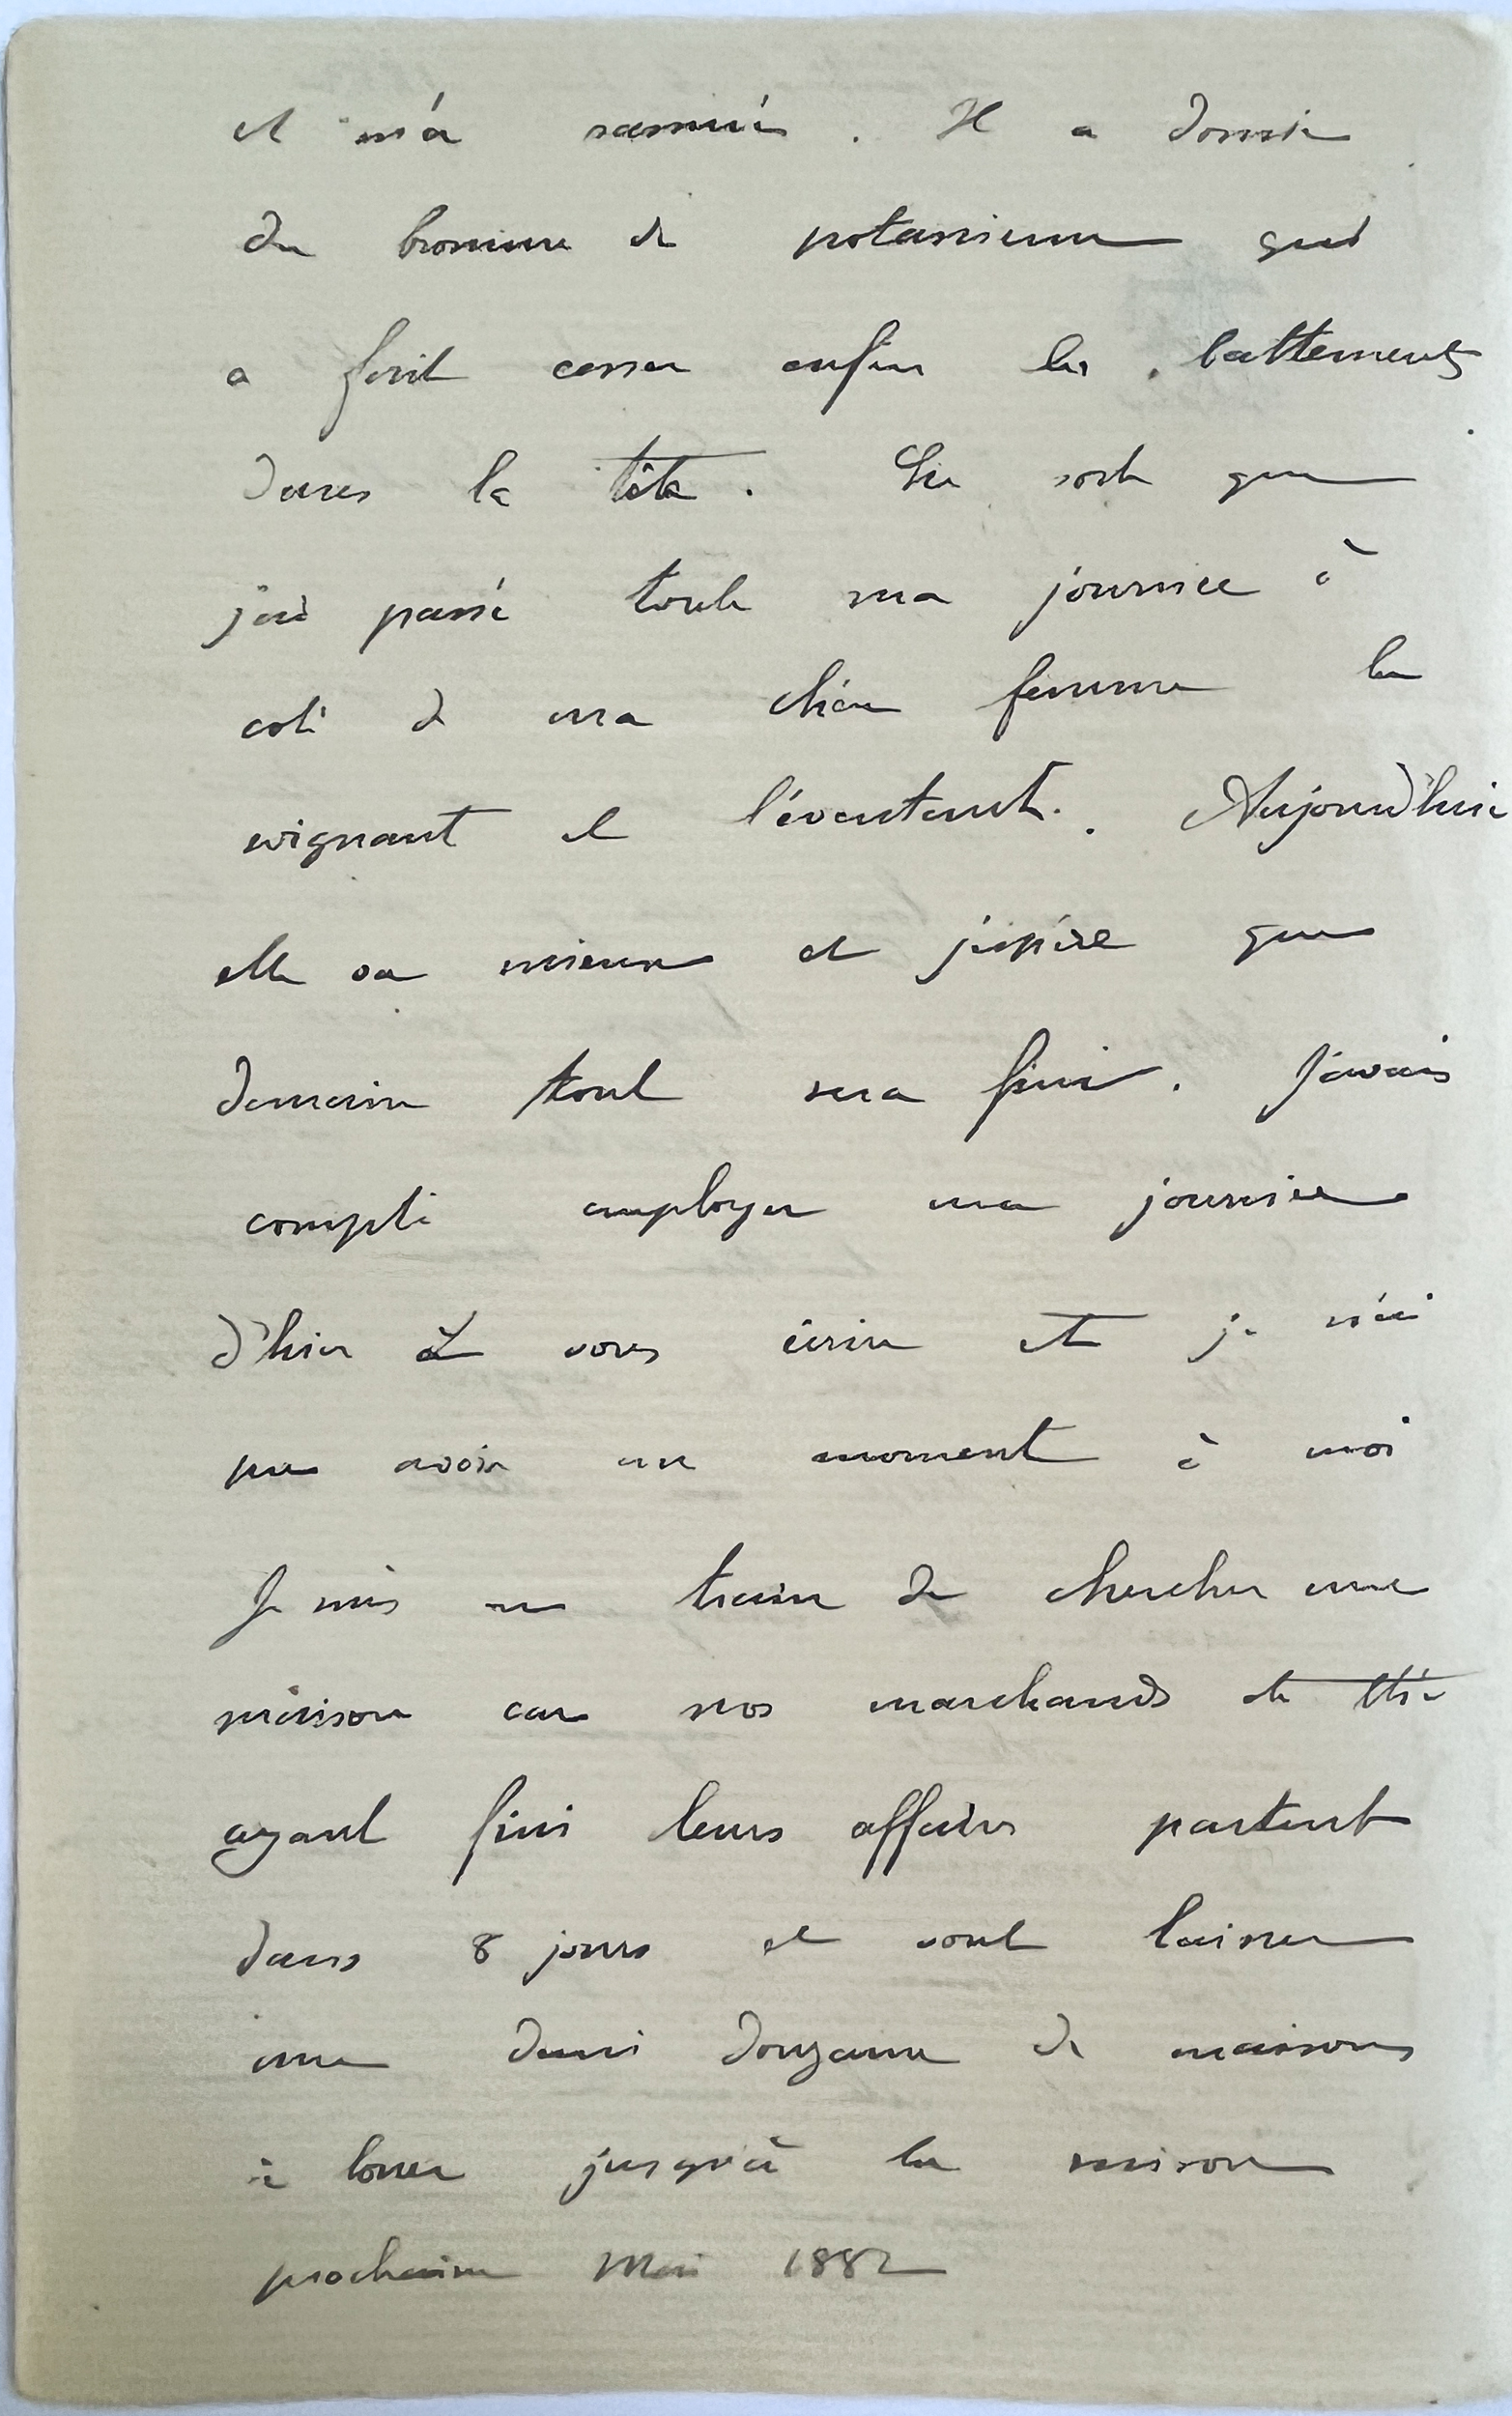 et m'a rassuré. Il a donné
du bromure de potassium qui
a fait cesser enfin les battements
dans la tête. En sorte que
j'ai passé toute ma journée à
coté de ma chère femme la
soignant et l'éventant. Aujourd'hui
elle va mieux et j'espère que
demain tout sera fini. J'avais
compté employer ma journée
d'hier à vous écrire et je n'ai
pu avoir un moment à moi
Je suis en train de chercher une
maison car nos marchands de thé
ayant fini leurs affaires partent
dans 8 jours et vont laisser
une demi douzaine de maisons
à louer jusqu'à la saison
prochaine Mai 1882